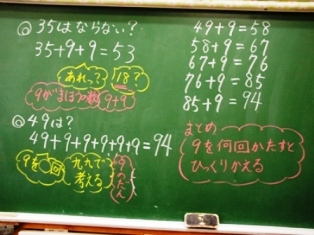 ◎35はならない?
35+9+9=53
あれっ?
18?
9がまほうの数
9+9
◎49は?
49+9+9+9+9+9=94
9を○回
九九で
考える
9のだん
49+9=58
58+9=67
67+9=76
76+9=85
85+9=94
まとめ
9を何回かたすと
ひっくりかえる